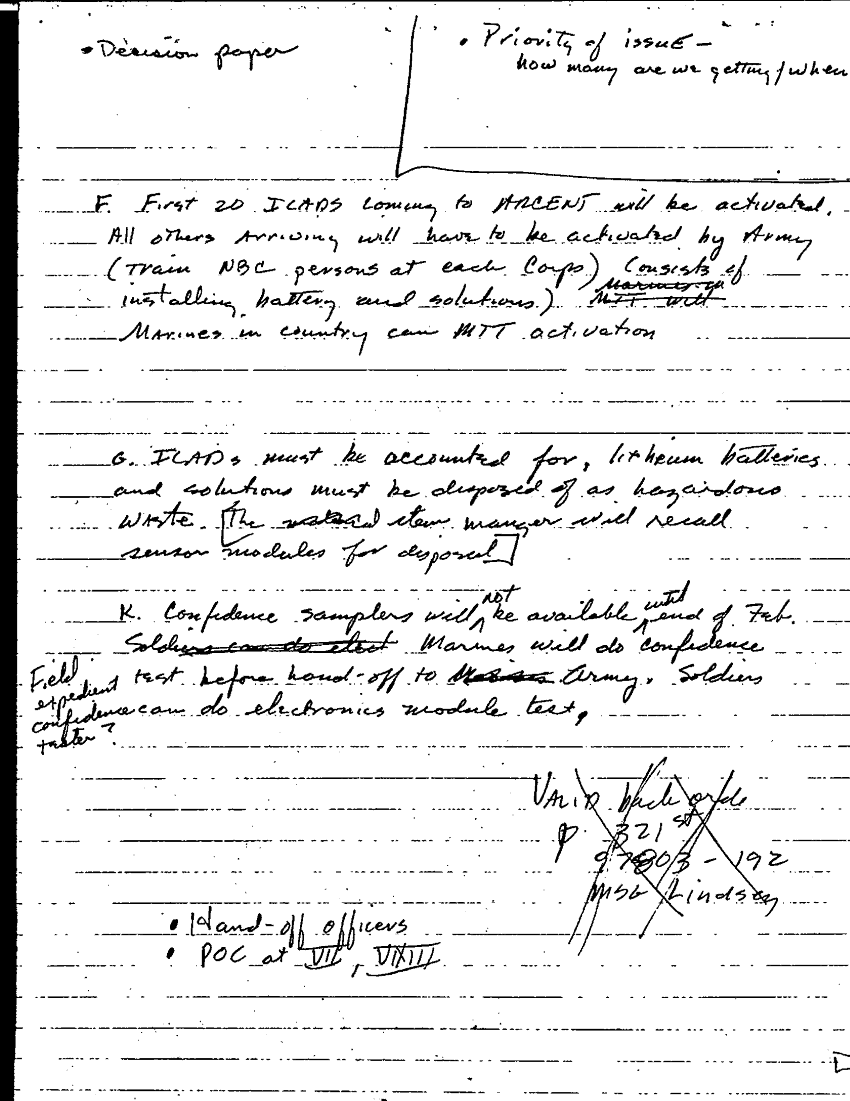 • Decision paper
• Priority of issue –
how many are we getting / when
F. First 20 ICADS coming to ARCENT will be activated.
All others arriving will have to be activated by Army
(Train NBC persons at each Corps) (Consists of
installing battery and solutions.) Marines in MTT will
Marines in country can MTT activation
G. ICADs must be accounted for, lithium batteries
and solutions must be disposed of as hazardous
waste. [The item manger will recall
sensor modules for disposal]
K. Confidence samplers will not be available until end of Feb.
Soldiers can do elect Marines will do confidence
test before hand-off to Army. Soldiers
can do electronics module test.
Field
expedient
confidence
taster?
VALID back orde
321st
97803-192
MSG Lindsey
• Hand-off officers
• POC at VII, VIXIII